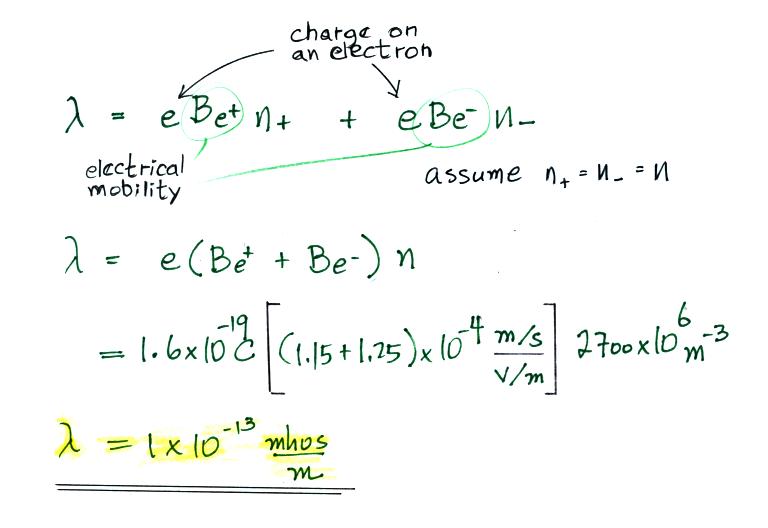 charge on
an electron
λ = e Be+ n+ + e Be- n-
electrical
mobility
assume n+ = n- = n
λ = e (Be+ + Be-) n
= 1.6x10^-19 C [(1.15+1.25)x10^-4 m/s / V/m] 2700x10^6 m^-3
λ = 1 x 10^-13 mhos / m